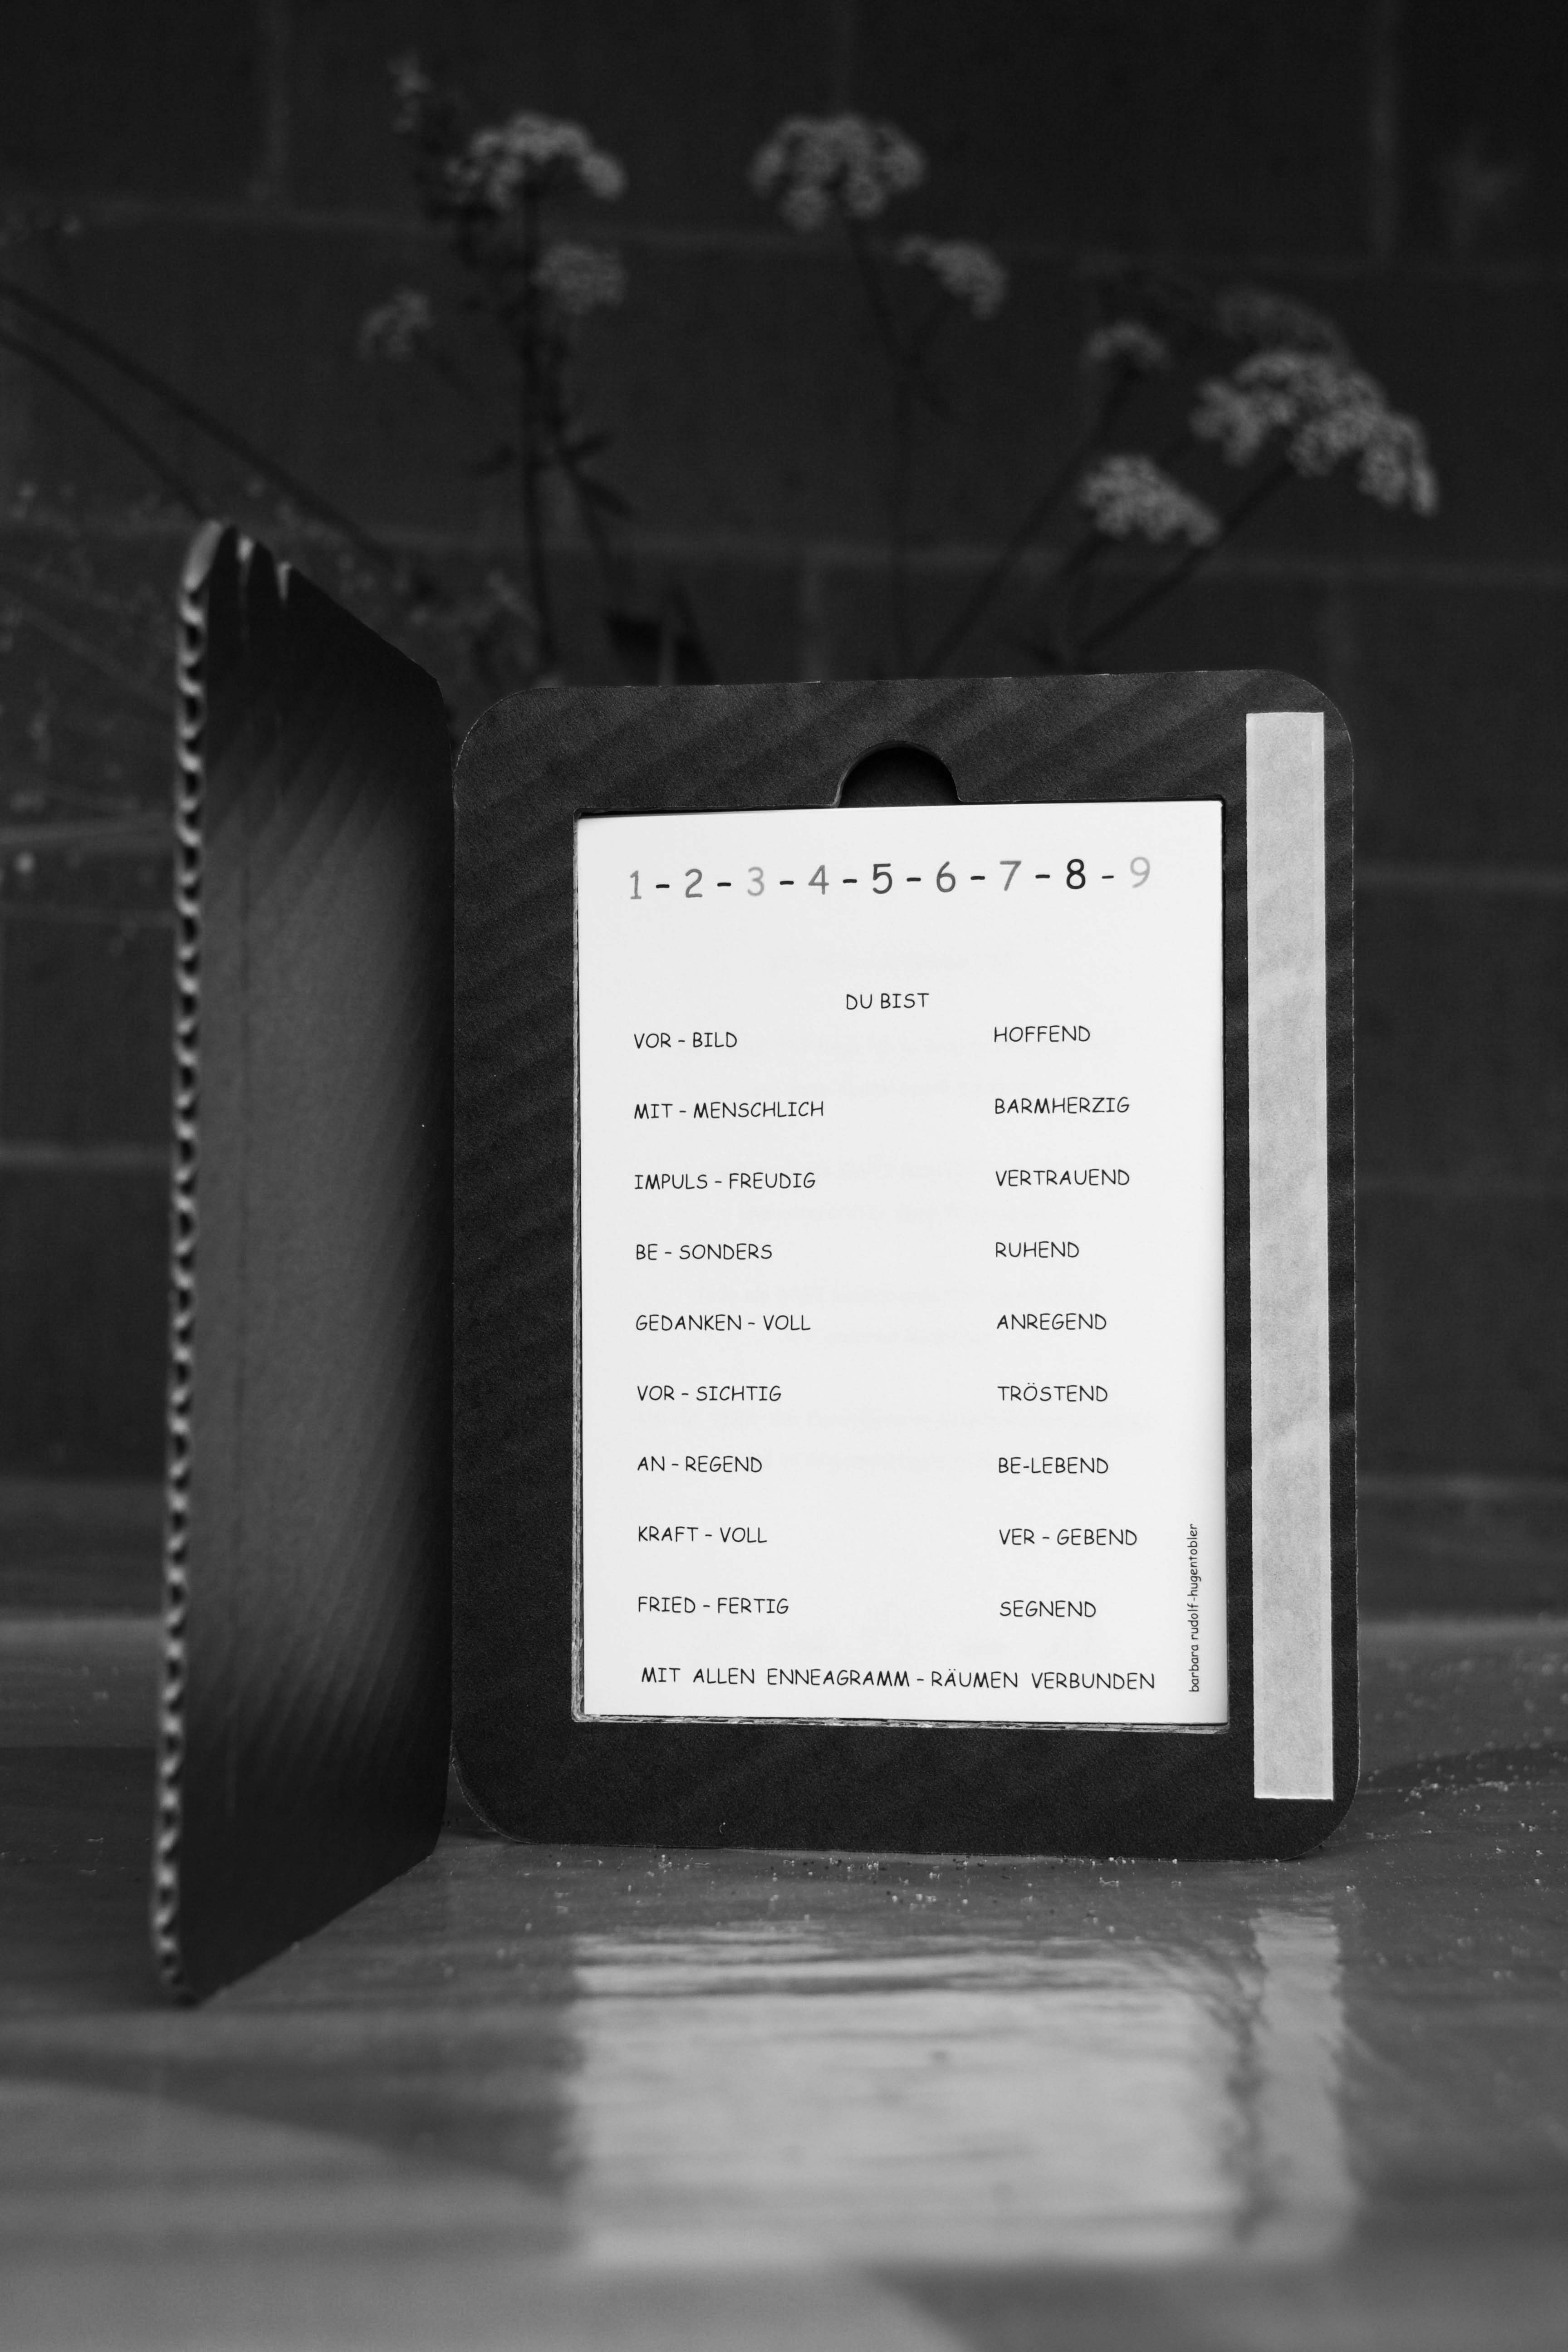 1 - 2 - 3 - 4 - 5 - 6 - 7 - 8 - 9
DU BIST
VOR - BILD HOFFEND
MIT - MENSCHLICH BARMHERZIG
IMPULS - FREUDIG VERTRAUEND
BE - SONDERS RUHEND
GEDANKEN - VOLL ANREGEND
VOR - SICHTIG TRÖSTEND
AN - REGEND BE-LEBEND
KRAFT - VOLL VER - GEBEND
FRIED - FERTIG SEGNEND
MIT ALLEN ENNEAGRAMM - RÄUMEN VERBUNDEN
barbara rudolf-hugentobler